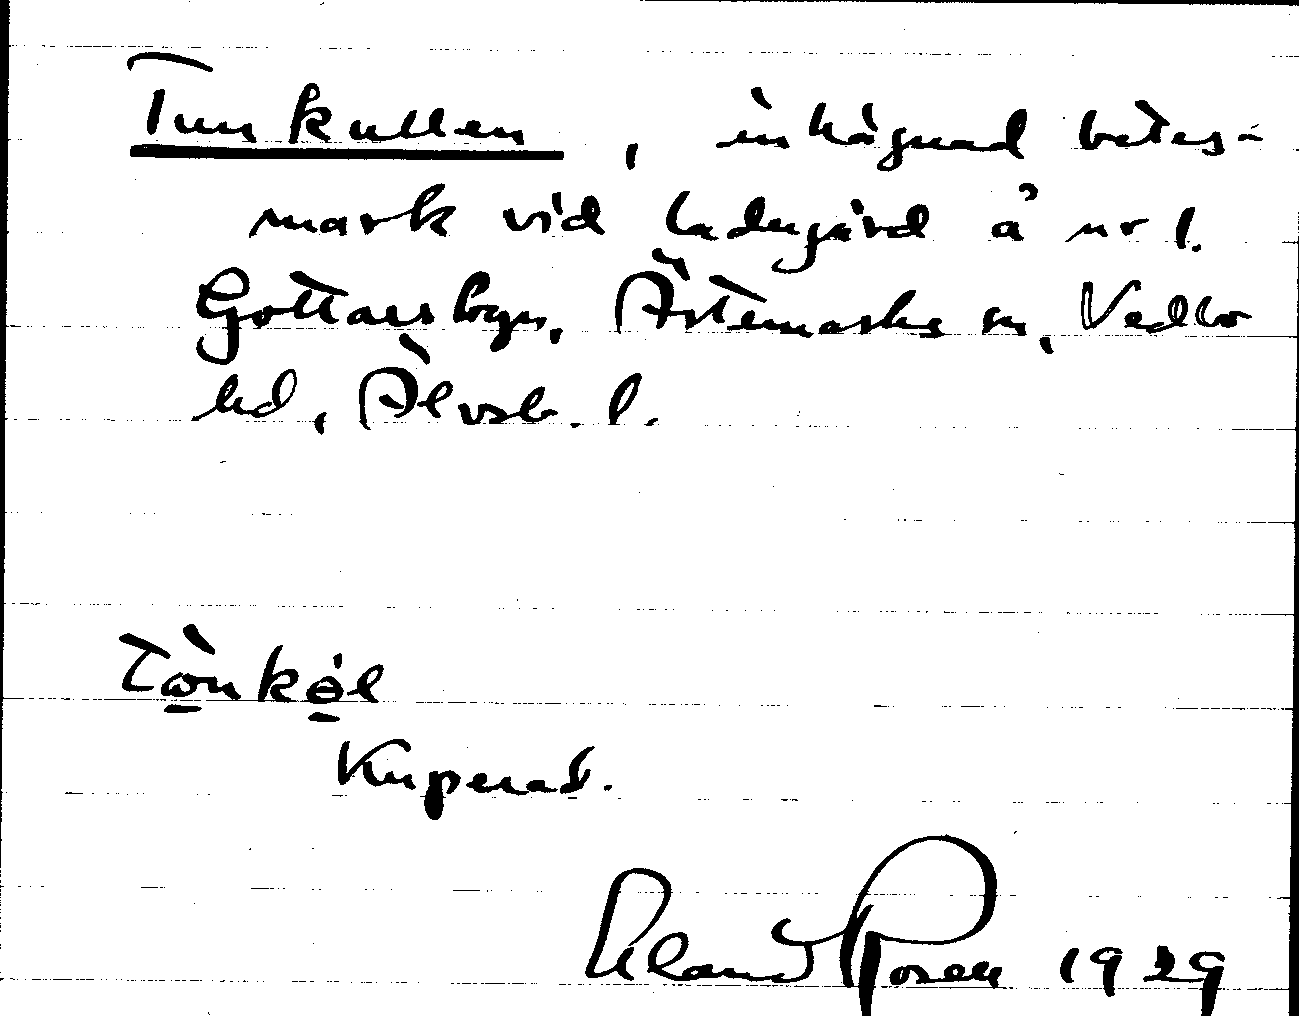 Tunkullen, inhägnad betes-
mark vid ladugård å nr 1.
Gottarsbyn, Ärtemarks sn, Vedbo
hd, Älvsb. l.
Tωnkөl
Kuperad.
Rosen 1929